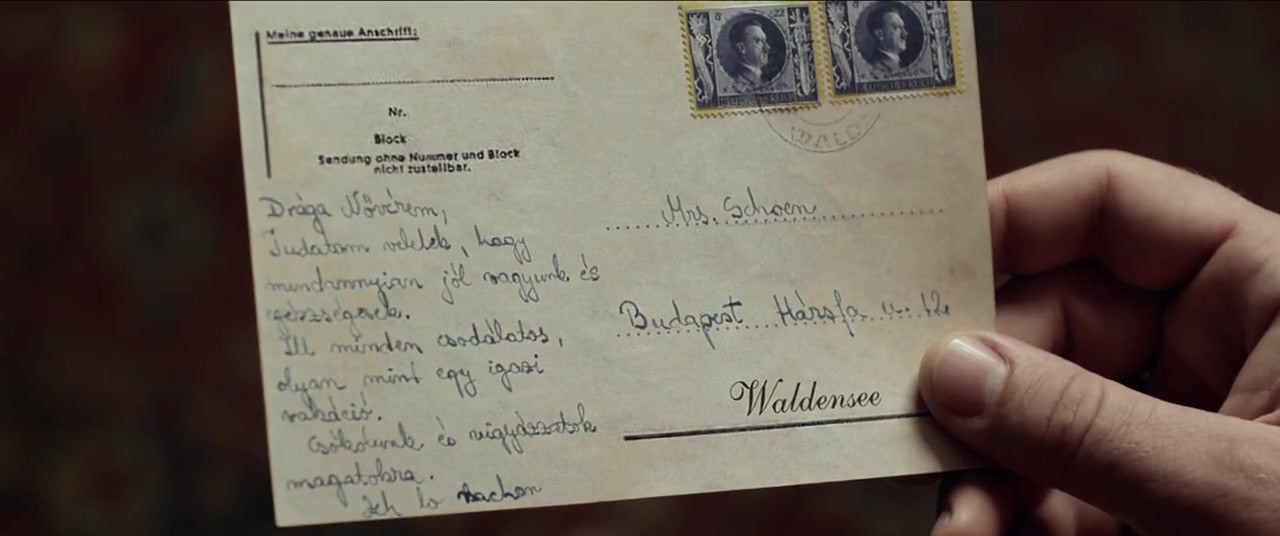 Meine genaue Anschrift:
Nr.
Block
Sendung ohne Nummer und Block
nicht zustellbar.
Drága Nővérem,
Tudatom veletek, hogy
mindannyian jól vagyunk és
egészségesek.
Itt minden csodálatos,
olyan mint egy igazi
vakáció.
Csókolunk és vigyázzatok
magatokra.
WALD
Mrs. Schoen
Budapest Hársfa u. 12.
Waldensee